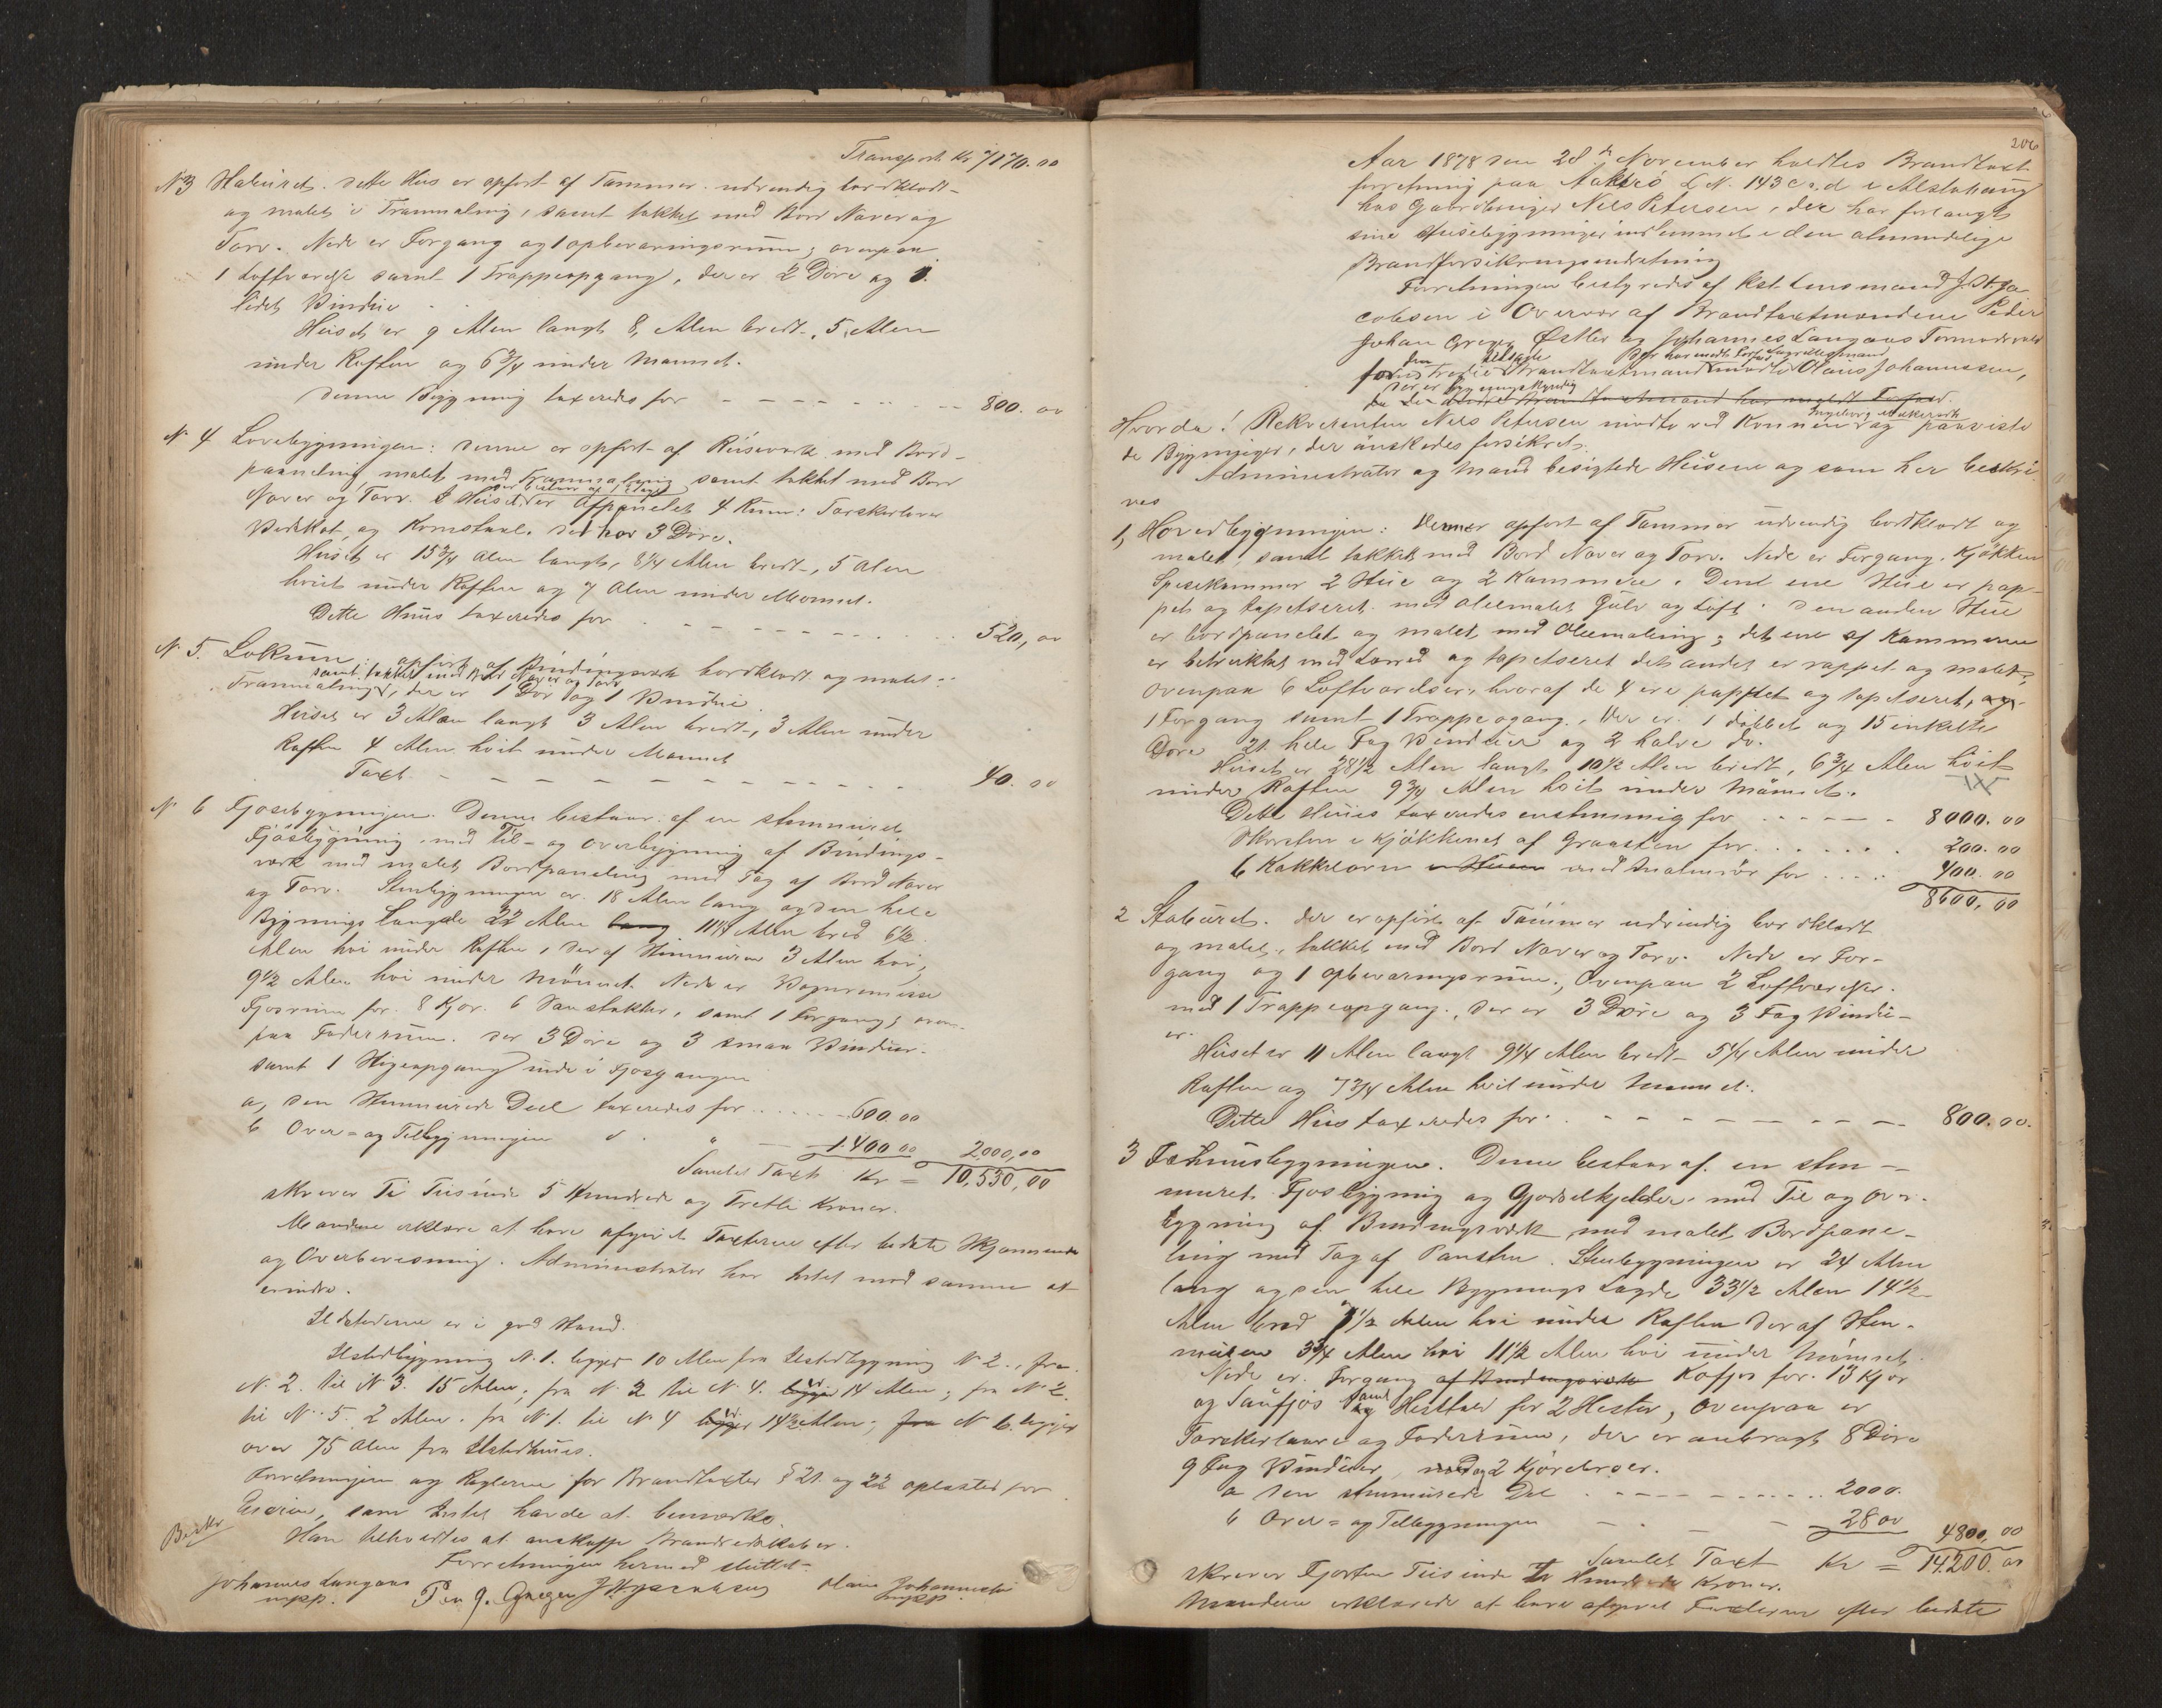 Transport Kr 7170.00
N3 Stabùret. Dette Hus er opført af Tømmer udvendig bordklædt
og malet i Tranmaling, samt tækket med Bord Næver og
Torv. Nede er Forgang og 1 opbevaringsrùm, ovenpaa
1 Loftværelse samt 1 Trappeopgang, der er 2 Døre og 1
lidet Vindùe
Hùset er 9 Alen langt 8 Alen bredt, 5 Alen
ùnder Raften og 6 3/4 ùnder Mønnet.
Denne Bygning taxeredes for 800. 00
N. 4 Lovebygningen: Denne er opført af Reisværk med Bord-
paneling malet med Tranmaling samt tækket med Bord
Næver og Torv. Hùset der bestaar af 1 Etage er afpanelet 4 Rùm: Tærskerlover
Vedskot og Kornstaal. Det har 3 Døre.
Hùset er 15 3/4 Alen langt, 8 1/4 Alen bredt, 5 Alen
høit ùnder Raften og 7 Alen ùnder Mønnet.
Dette Hùùs taxeredes for 520, 00
N. 5. Lokùm: opført af Bindingsværk bordklædt og malet
samt tækket med Bord Næver og Torv
Tranmaling, der er 1 Dør og 1 Vindùe.
Hùset er 3 Alen langt 3 Alen bredt, 3 Alen ùnder
Raften 4 Alen høit ùnder Mønnet
Taxt 40. 00
N. 6 Fjosebygningen. Denne bestaar af en stenmùret
Fjøsbygning med Til- og Overbygning af Bindings-
værk med malet Bordpaneling med Tag af Bord Næver
og Torv. Stenbygningen er 18 Alen lang og den hele
Bygnings Længde 22 Alen lang 11 1/4 Alen bred 6 1/2
Alen høi ùnder Raften, deraf Stenmùren 3 Alen høi,
9 1/2 Alen høi ùnder Mønnet. Nede er Vognremisse
Fjosrùm for 8 Kjør. 6 Saustakker, samt 1 Forgang; oven-
paa Foderrùm. Der 3 Døre og 3 smaa Vindùer
samt 1 Stigeopgang inde i Fjosgangen
a, Den Stenmùrede Deel taxeredes for 600.00
b Over= og Tilbygningen d. " 1.400 00 2000,00
Samlet Taxt Kr = 10,530,00
skrever Ti Tùsinde 5 Hùndrede og Tretti Kroner.
Mændene erklære at have afgivet Taxterne efter bedste Skjønnende
og Overbevisning. Administrator har Intet mod samme at
erindre.
Ildstederne er i god Stand.
Ildstedbygning N. 1. ligger 10 Alen fra Ildstedbygning N 2., fra
N. 2. til N 3. 15 Alen; fra N. 2 til N. 4. er 14 Alen; fra N. 2.
til N. 5. 2 Alen. fra N. 1. til N. 4 er 14 1/2 Alen; fra N 6. ligger
over 75 Alen fra Ildstedhùùs.
Forretningen og Reglerne for Brandtaxter § 21. og 22 oplæstes for
Eierne, som Intet havde at bemærke.
Han tilholdtes at anskaffe Brandredskaber.
Forretningen hermed sluttet.
Johannes Langaas
mpp.
P. J. Grøger J. H. Jacobsen Olaus Johannesen
mpp.
206
Aar 1878 den 28. November holdtes Brandtaxt
forretning paa Aakerø L N. 143 c. d i Alstahaug
hos Gaardbruger Nils Petersen, der har forlangt
sine Hùsebygninger indlemmet i den almindelige
Brandforsikringsindretning
Forretningen bestyredes af Kst. Lensmand J. H. Ja-
cobsen i Overvær af Brandtaxtmændene Peder
Johan Grøger Østler og Johannes Langaas
for den tredie tilsagte Brandtaxtmand mødte Olaus Johannesen,
der er bygningskyndig
da den tredie Brandtaxtmand har meldt Forfald.
Hvorda! Rekverenten Nils Petersen mødte ved Konnen Ingeborg og paaviste
de Bygninger, der ønskedes forsikret.
Administrator og Mænd besigtede Hùsene og som her beskri-
ves
1, Hovedbygningen: Denne er opført af Tømmer ùdvendig bordklædt og
malet, samt tækket med Bord Næver og Torv. Nede er Forgang. Kjøkken
Spisekammer 2 Stùe og 2 Kammere. Dent ene Stùe er pap-
pet og tapetseret med oliemalet Gùlv og Loft. Den anden Stùe
er bordpanelet og malet med Oliemaling; det ene af Kammerne
er betrukket med Lærred og tapetseret det andet er pappet og malet,
Ovenpaa 6 Loftværelser, hvoraf de 4 ere pappet og tapetseret, og
1 Forgang samt 1 Trappeogang. Der er 1 dobbet og 15 enkelte
Døre 21 hele Fag Vindùer og 2 halve do.
Hùset er 28 1/2 Alen langt 10 1/2 Alen bredt, 6 3/4 Alen høit
ùnder Raften 9 3/4 Alen høit ùnder Mønnet.
Dette Hùùs taxeredes enstemmig for 8000. 00
Skorsten i Kjøkkenet af Graasten for 200. 00
6 Kakkelovn i Stùen med Malmrør for 400. 00
8600, 00
2 Stabùret. Der er opført af Tømmer udvendig bordklædt
og malet, tækket med Bord Næver og Torv. Nede er For-
gang og 1 opbevaringsrùm, Ovenpaa 2 Loftværelser.
med 1 Trappeopgang, Der er 3 Døre og 3 Fag Vindù-
er
Hùset er 11 Alen langt 9 1/4 Alen bredt 5 1/4 Alen ùnder
Raften og 7 3/4 Alen høit ùnder Mønnet.
Dette Hùs taxeredes for 800. 00.
3 Fæhùùsbygningen. Denne bestaar af en sten-
mùret Fjosbygning og Gjødselkjelder med Til og Over-
bygning af Bindingsværk med malet Bordpane-
ling med Tag af Pansten. Stenbygningen er 24 Alen
lang og den hele Bygnings Lægde 33 1/2 Alen 14 1/2
Alen bred 7 1/2 Alen høi ùnder Raften deraf Sten-
mùren 3 3/4 Alen høi 11 1/2 Alen høi ùnder Mønnet
Nede er Forgang af Bindingsværk Kofjos for 13 Kjør
og Saùfjos samt Hestteald for 2 Hester, ovenpaa er
Tærskerlaave og Foderrùm, der er anbragt 8 Døre
9 Fag Vindùer, og 2 Kjørebroer.
a den stenmùrede Del 2000.
b Over= og Tilbygningen 2800 4800,00
Samlet Taxt Kr = 14.200. 00
skrever Fjorten Tùsinde To Hùndrede Kroner.
Mændene erklærede at have afgivet Taxterne efter bedste